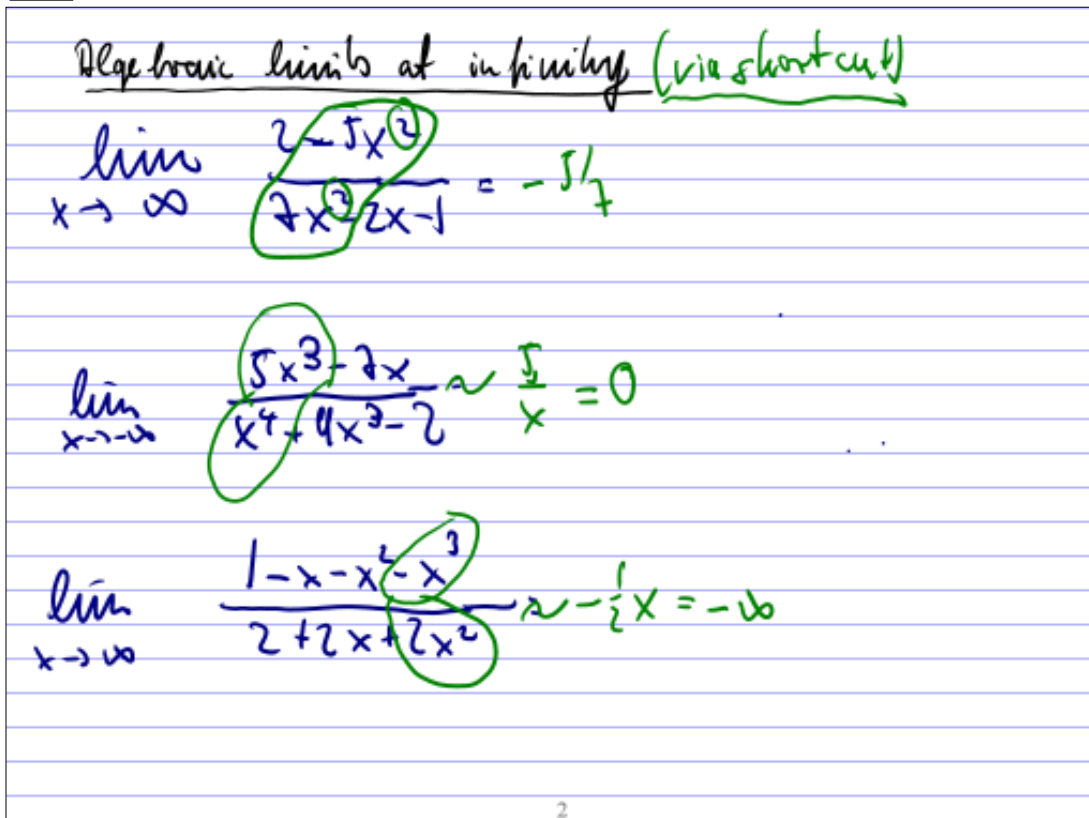 Algebraic limits at infinity (via shortcut)
lim x→∞ (2 - 5x²)/(7x² - 2x - 1) = - 5/7
lim x→-∞ (5x³ - 7x)/(x⁴ + 4x³ - 2) ~ 5/x = 0
lim x→∞ (1 - x - x² - x³)/(2 + 2x + 2x²) ~ - 1/2 x = -∞
2